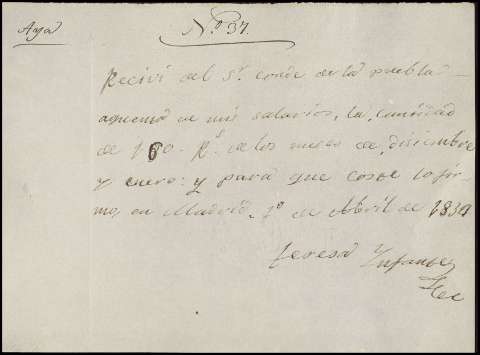 Aya
N.º 37.
Recivi del S.r conde de la puebla
aquenta de mis salarios, la cantidad
de 160. R.s de los meses de disiembre
y enero: y para que coste lo fir-
mo, en Madrid. 1º de Abril de 1839
teresa Infante